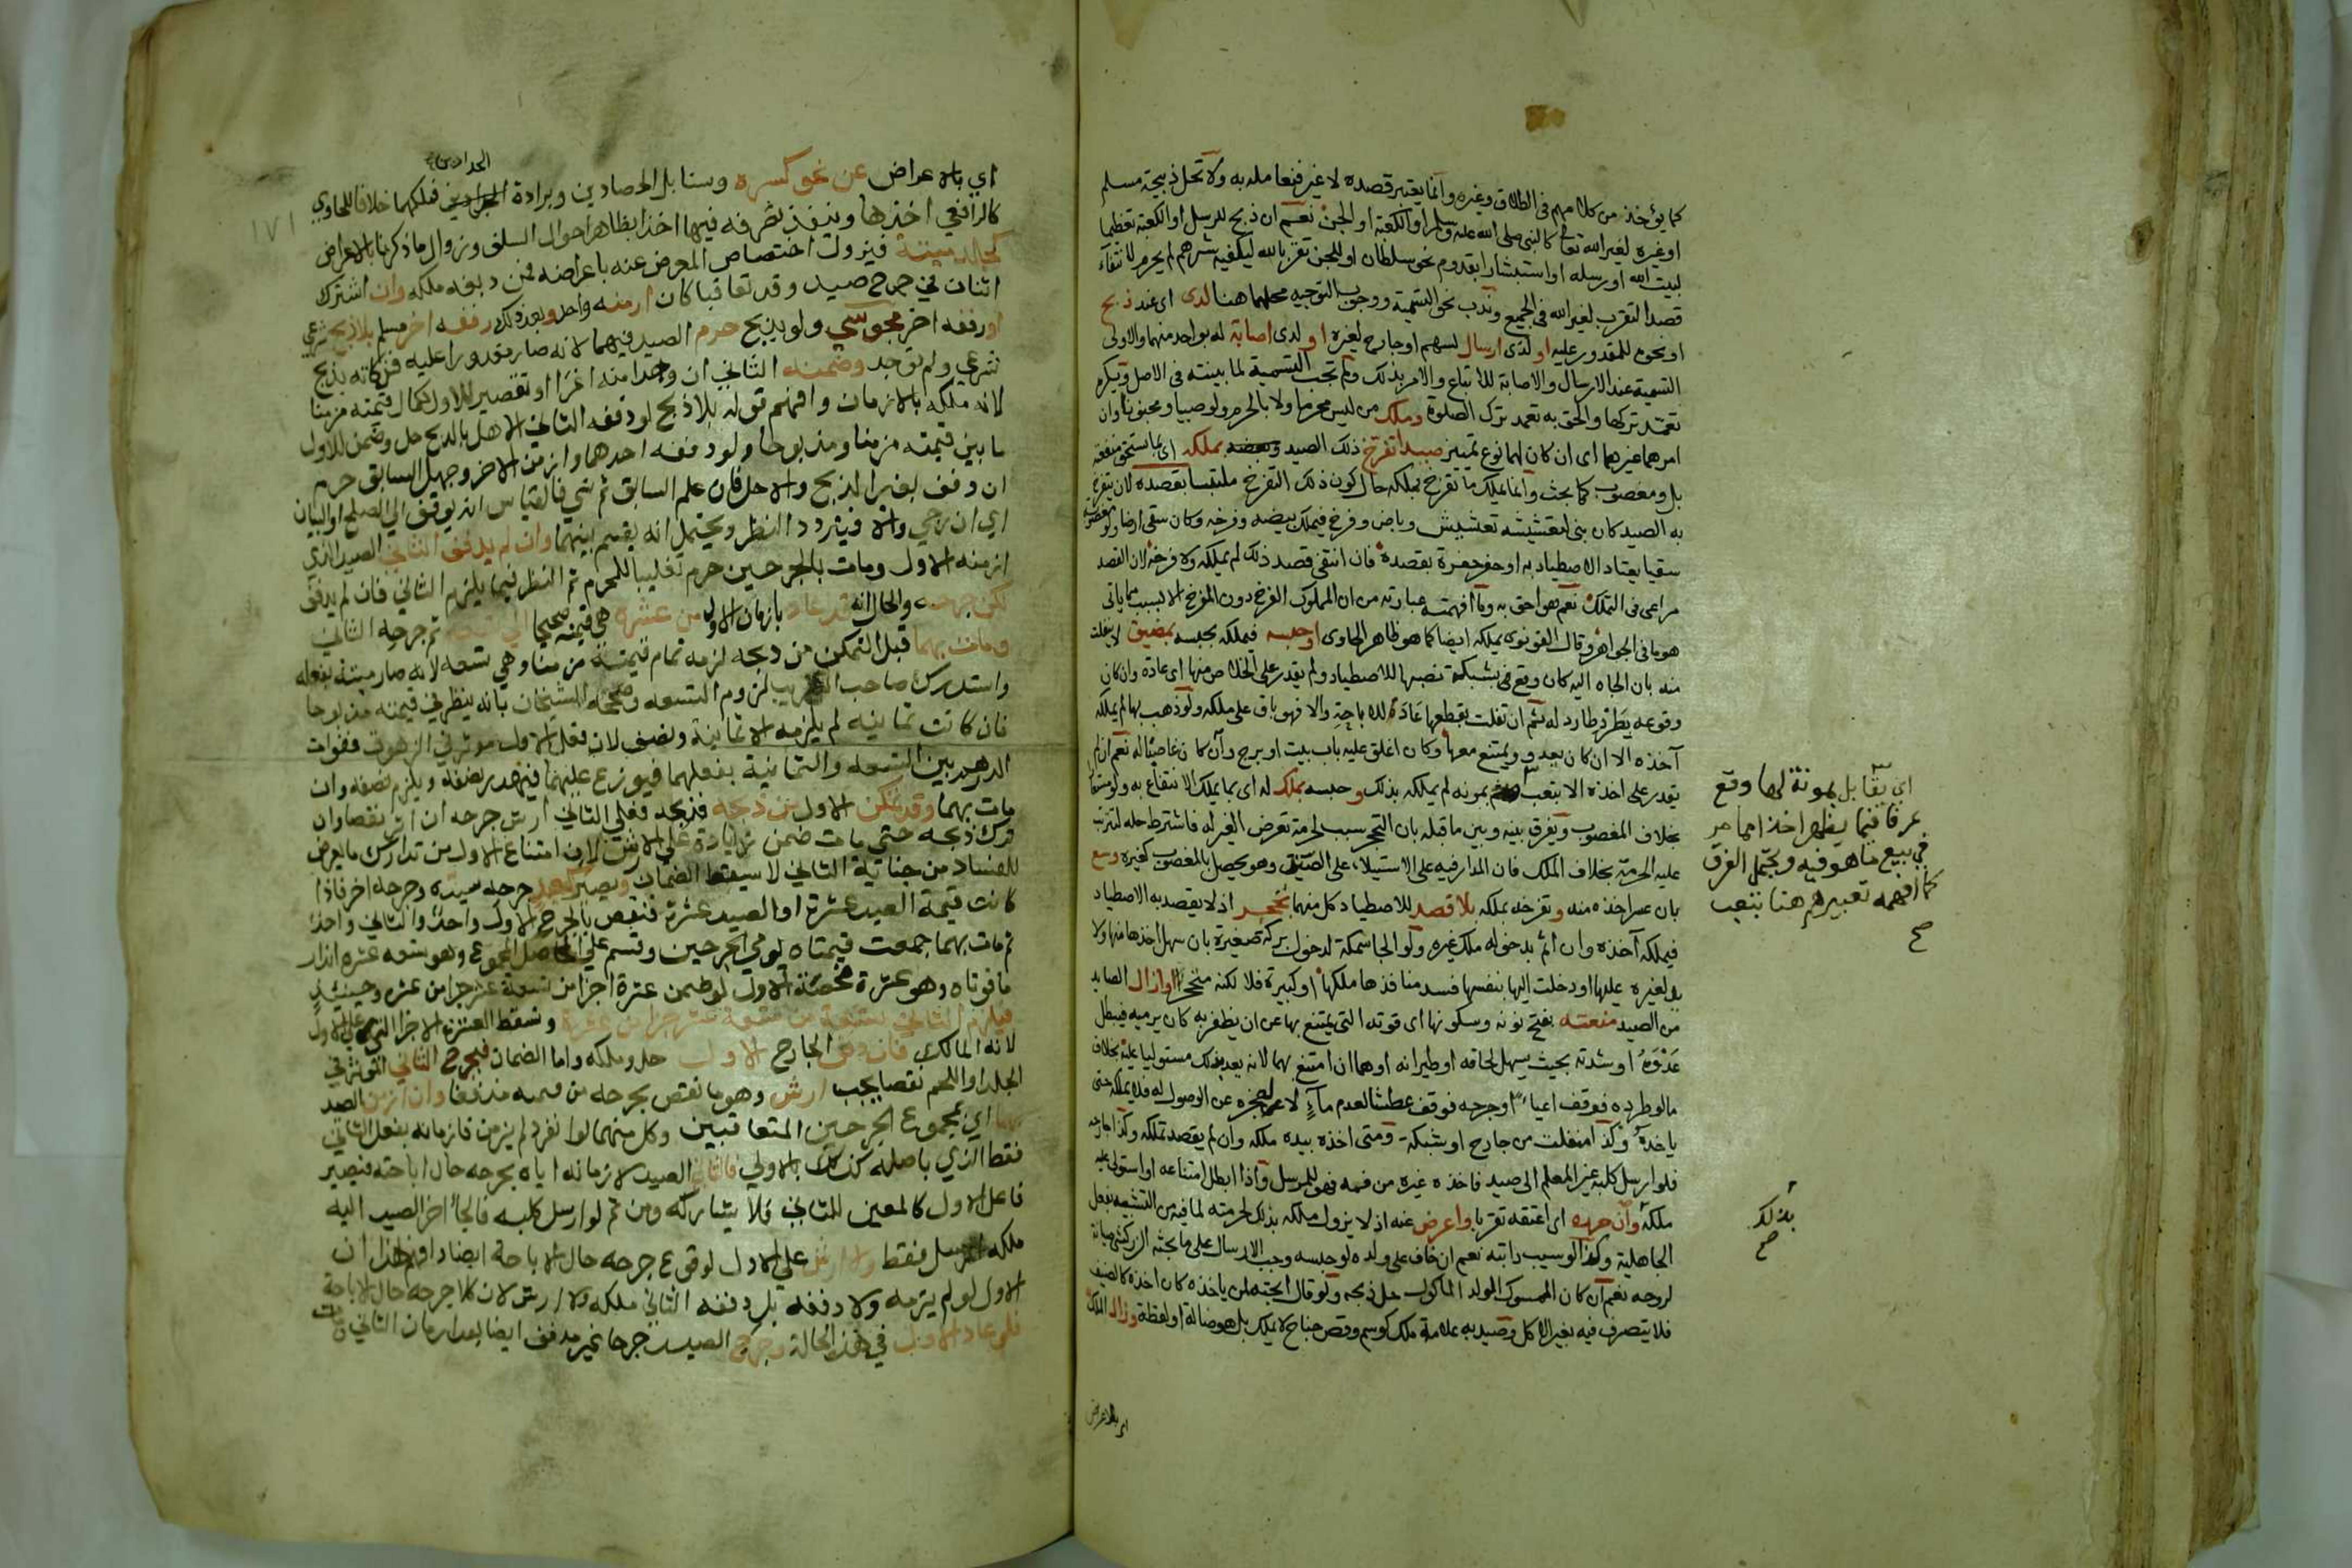 كما يؤخذ من كلامهم في الطلاق وغيره وانما يعتبر قصده لا غير فنعامله به ولا تحل ذبيحة مسلم
او غيره لغير الله تعالى كالنبي صلى الله عليه وسلم او الكعبة او الجن نعم ان ذبح للرسل او الكعبة تعظيما
لبيت الله او رسله او استبشارا بقدوم نحو سلطان او للجن تقربا لله ليكفيه شرهم لم يحرم لانتفاء
قصد التقرب لغير الله في الجميع وندب نحو التسمية ووجوب التوجيه محلهما هنا لدى اي عند ذبح
او نحوه للمقدور عليه او لدى ارسال لسهم او جارح لغيره او لدى اصابة له بواحد منهما والاولى
التسمية عند الارسال والاصابة للاتباع والامر بذلك ولم تجب التسمية لما بينته في الاصل ويكره
تعمد تركها والحق به تعمد ترك الصلوة وملك من ليس محرما ولا بالحرم ولو صبيا ومجنونا وان
امرهما غيرهما اى ان كان لهما نوع تمييز صيدا تفرخ ذلك الصيد بملكه اي بما يستحق منفعته
بل ومغصوب كما بحث وانما يملك ما تفرخ بملكه حال كون ذلك التفرخ ملتبسا بقصده لان يتفرخ
به الصيد كان بنى لتعشيشه تعشيش وباض وفرخ فيملك بيضه وفرخه وكان سقى ارضا ولو مغصوبة
سقيا يعتاد الاصطياد به او حفر حفرة بقصده فان انتفى قصد ذلك لم يملكه ولا فرخه لان القصد
مراعى في التملك نعم هو احق به وما افهمته عبارته من ان المملوك الفرخ دون المفرخ الا لسبب مما ياتي
هو ما في الجواهر وقال القونوي يملكه ايضا كما هو ظاهر الحاوى او حبسه فيملكه بحبسه بمضيق لا ينفلت
منه بان الجاه اليه كان وقع في شبكة نصبها للاصطياد ولم يقدر على الخلاص منها اي عادة وان كان
وقوعه بطرد طارد له ثم ان تفلت بقطعها عاد للاباحة والا فهو باق على ملكه ولو ذهب بها لم يملكه
آخذه الا ان كان يعدو ويمتنع معها وكان اغلق عليه باب بيت او برج وان كان غاصبا له نعم ان لم
يقدر على اخذه الا بتعب بمونه لم يملكه بذلك وحبسه بملك له اى بما يملك الانتفاع به ولو مستعارا
بخلاف المغصوب ويفرق بينه وبين ما قبله بان التحجر سبب لحرمة تعرض الغير له فاشترط حله لترتب
عليه الحرمة بخلاف الملك فان المدار فيه على الاستيلاء على الضيق وهو يحصل بالمغصوب كغيره وسع
بان عسر اخذه منه وتفرخه بملكه بلا قصد للاصطياد كل منهما تحجر اذ لا يقصد به الاصطياد
فيملكه آخذه وان اثم بدخوله ملك غيره ولو الجا سمكة لدخول بركة صغيرة بان سهل اخذها منها ولا
يد لغيره عليها او دخلت اليها بنفسها فسد منافذها ملكها او كبيرة فلا لكنه متحجر او ازال الصايد
من الصيد منعته بفتح نونه وسكونها اى قوته التى يمتنع بها عن ان يظفر به كان يرميه فيبطل
عدوه او شدته بحيث يسهل لحاقه او طيرانه او هما ان امتنع بهما لانه يعد بذلك مستوليا عليه بخلاف
ما لو طرده فوقف اعياء او جرحه فوقف عطشا لعدم ماء لا عجزه عن الوصول له فلا يملكه حتى
ياخذه وكذا منفلت من جارح او شبكة ومتى اخذه بيده ملكه وان لم يقصد تملكه
فلو ارسل كلبه غير المعلم الى صيد فاخذه غيره من فمه فهو للمرسل واذا ابطل امتناعه او استولى عليه
ملكه وان حرره اى اعتقه تقربا واعرض عنه اذ لا يزول ملكه بذلك لحرمته لما فيه من التشبه بفعل
الجاهلية وكذا لو سيب دابته نعم ان خاف على ولده لو حبسه وجب الارسال على ما بحثه الزركشي صيانة
لروحه نعم ان كان الممسوك الولد الماكول حل ذبحه ولو قال ابحته لمن ياخذه كان اخذه كالضيف
فلا يتصرف فيه بغير الاكل وصيد به علامة ملك كوسم وقص جناح لا يملك بل هو ضالة او لقطة وزال الملك
اي بالاعراض
اي يقابل بمونة لها وقع
عرفا فيما يظهر اخذا مما مر
في بيع ما هو فيه ويحتمل الفرق
كما افهمه تعبيرهم هنا بتعب
صح
بذلك
صح
الحدادين
اي بالاعراض عن نحو كسرة وسنابل الحصادين وبرادة فملكهما خلافا للحاوي
كالرافعي اخذها وينفذ تصرفه فيها اخذا بظاهر احوال السلف وزوال ما ذكرنا بالاعراض
كجلد ميتة فيزول اختصاص المعرض عنه باعراضه فمن دبغه ملكه وان اشترك
اثنان في جرح صيد وقد تعاقبا كان ازمنه واحد وبعد ذلك رففه اخر مسلم بلا ذبح شرعي
او رففه اخر مجوسي ولو بذبح حرم الصيد فيهما لانه صار مقدورا عليه فزكاته بذبح
شرعي ولم توجد وضمنه الثاني ان وجد منه اغرا او تقصير للاول كمال قيمته مزمنا
لانه ملكه بالازمان وافهم قوله بلا ذبح لو دففه الثاني الاهل بالذبح حل وضمن للاول
ما بين قيمته مزمنا ومذبوحا ولو دففه احدهما وازمن الاخر وجهل السابق حرم
ان دفف بغير الذبح والا حل فان علم السابق ثم نسي فالقياس انه يوقف الى الصلح او البيان
اي ان رجي والا فيتردد النظر ويحتمل انه يقسم بينهما وان لم يدفف الثاني الصيد الذي
ازمنه الاول ومات بالجرحين حرم تغليبا للمحرم ثم النظر فيما يلزم الثاني فان لم يدفف
لكن جرحه والحال انه قد عاد بازمان الاول من عشرة هي قيمته صحيحا الي تسعة ثم جرحه الثاني
ومات بهما قبل التمكن من ذبحه لزمه تمام قيمته مزمنا وهي تسعه لانه صار ميتة بفعله
واستدرك صاحب التقريب لزوم التسعه وصححه الشيخان بانه ينظر في قيمته مذبوحا
فان كانت ثمانيه لم يلزمه الا ثمانية ونصف لان فعل الاول موثر في الزهوق ففوات
الدرهم بين التسعه والثمانية بفعلهما فيوزع عليهما فيهدر نصفه ويلزم نصفه وان
مات بهما وقد تمكن الاول من ذبحه فذبحه فعلي الثاني ارش جرحه ان اثر نقصا وان
ترك ذبحه حتى مات ضمن زيادة على الارش لان امتناع الاول من تدارك ما يعرض
للفساد من جناية الثاني لا يسقط الضمان ويصير كعبد جرحه سيده وجرحه اخر فاذا
كانت قيمة العبد عشرة او الصيد عشرة فنقص بالجرح الاول واحدا والثاني واحدا
ثم مات بهما جمعت قيمتاه يومي الجرحين وقسم علي الحاصل المجموع وهو تسعه عشر
ما فوتاه وهو عشرة فحصة الاول لو ضمن عشرة اجزا من تسعة عشر جزا من عشره وحينئذ
فيلزم الثاني تسعة من تسعة عشر جزا من عشرة وتسقط العشرة الاجزا التي على الاول
لانه المالك فان دفف الجارح الاول حل وملكه واما الضمان فبجرح الثاني المؤثر في
الجلد او اللحم نقصا يجب ارش وهو ما نقص بجرحه من قيمته مذففا وان ازمن الصيد
بهما اي بمجموع الجرحين المتعاقبين وكل منهما لو انفرد لم يزمن فازمانه بفعل الثاني
فقط الذي باصله كذلك بالاولي فالثاني الصيد لازمانه اياه بجرحه حال اباحته فيصير
فاعل الاول كالمعين للثاني فلا يشاركه ومن ثم لو ارسل كلبه فالجا اخر الصيد اليه
ملكه المرسل فقط ولا ارش علي الاول لوقوع جرحه حال الاباحة ايضا وافهم هذا ان
الاول لو لم يزمه ولا دففه بل دففه الثاني ملكه ولا ارش لان كلا جرحه حال الاباحة
فلو عاد الاول في هذه الحالة وجرح الصيد جرحا غير مدفف ايضا بعد ازمان الثاني ومات
١٧١